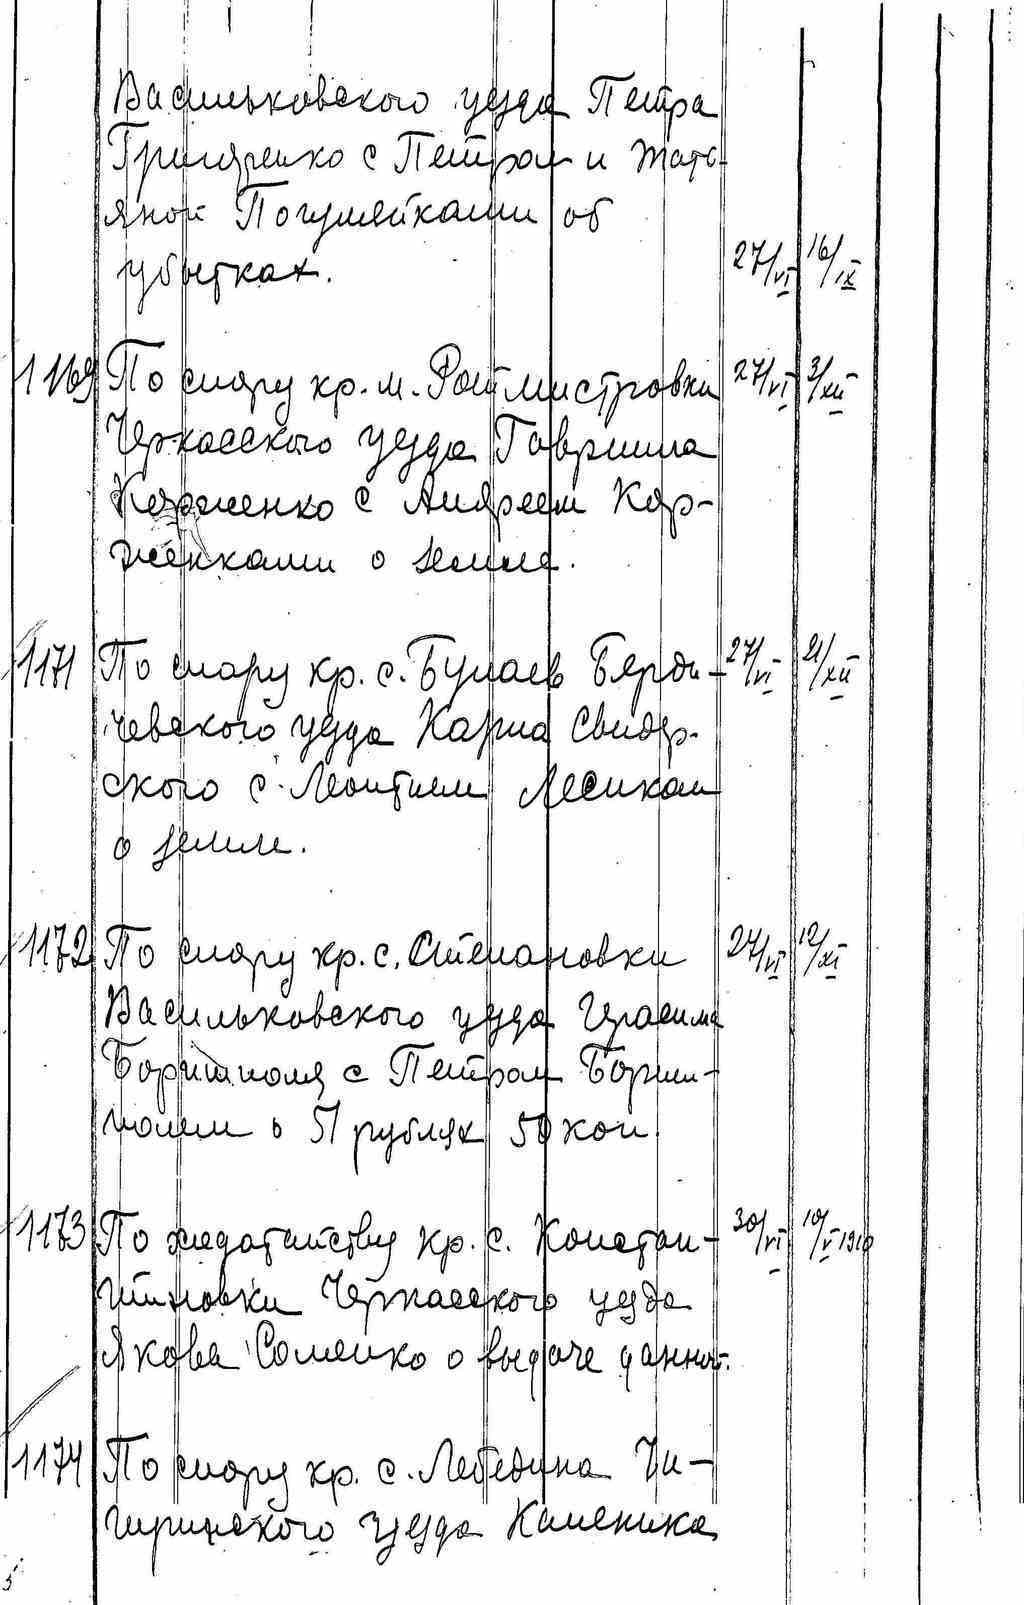 Васильковского уезда Петра
Гриценко с Петром и Тать-
яной Погумейками об
убытках. 27/VI 16/IX
1169 По спору кр. м. Ротмистровки 27/VI 3/XII
Черкасского уезда Гавриила
Корженко с Андреем Кор-
женками о земле.
1171 По спору кр. с. Булаев Берди- 27/VI 21/XII
чевского уезда Карпа Свидер-
ского с Леонтием Лесиком
о земле.
1172 По спору кр. с. Степановки 27/VI 12/XI
Васильковского уезда Герасима
Боришполя с Петром Бориш-
полем о 51 рублях 50 коп.
1173 По ходатайству кр. с. Констан- 30/VI 10/V 1910
тиновки Черкасского уезда
Якова Соменко о выдаче данной.
1174 По спору кр. с. Лебедина Чи-
гиринского уезда Каленика